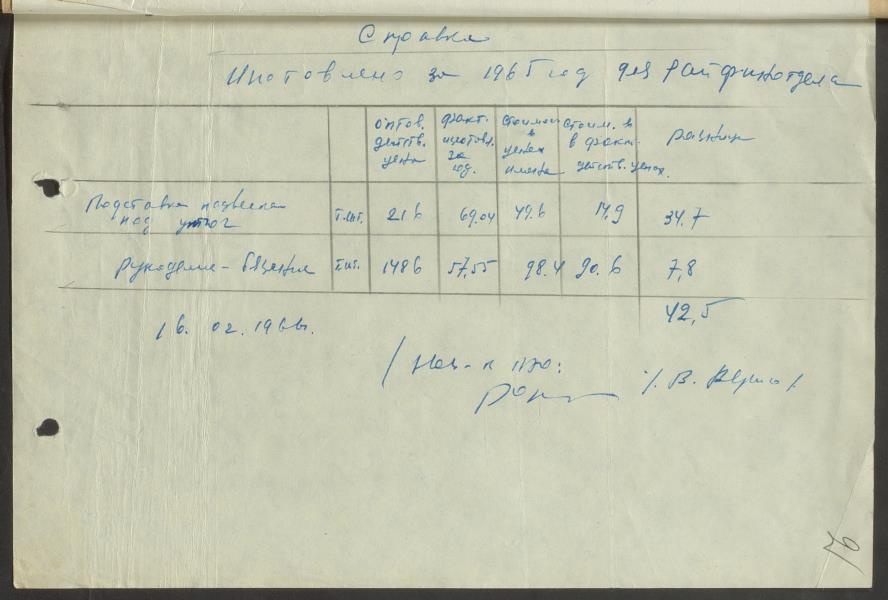 Справка
Изготовлено за 1965 год для Райфинотдела
оптов. действ. цена
факт. изготовл. за год.
стоим. в ценах
стоим. в факт. действ. ценах.
разница
Подставка
под утюг т.шт. 216 69.04 49.6 14.9 34.7
рукоделие - вязание т.шт. 1486 57,55 98.4 90.6 7,8
42,5
16. 02. 1966г.
/ Нач-к ПЭО:
/. В.
76